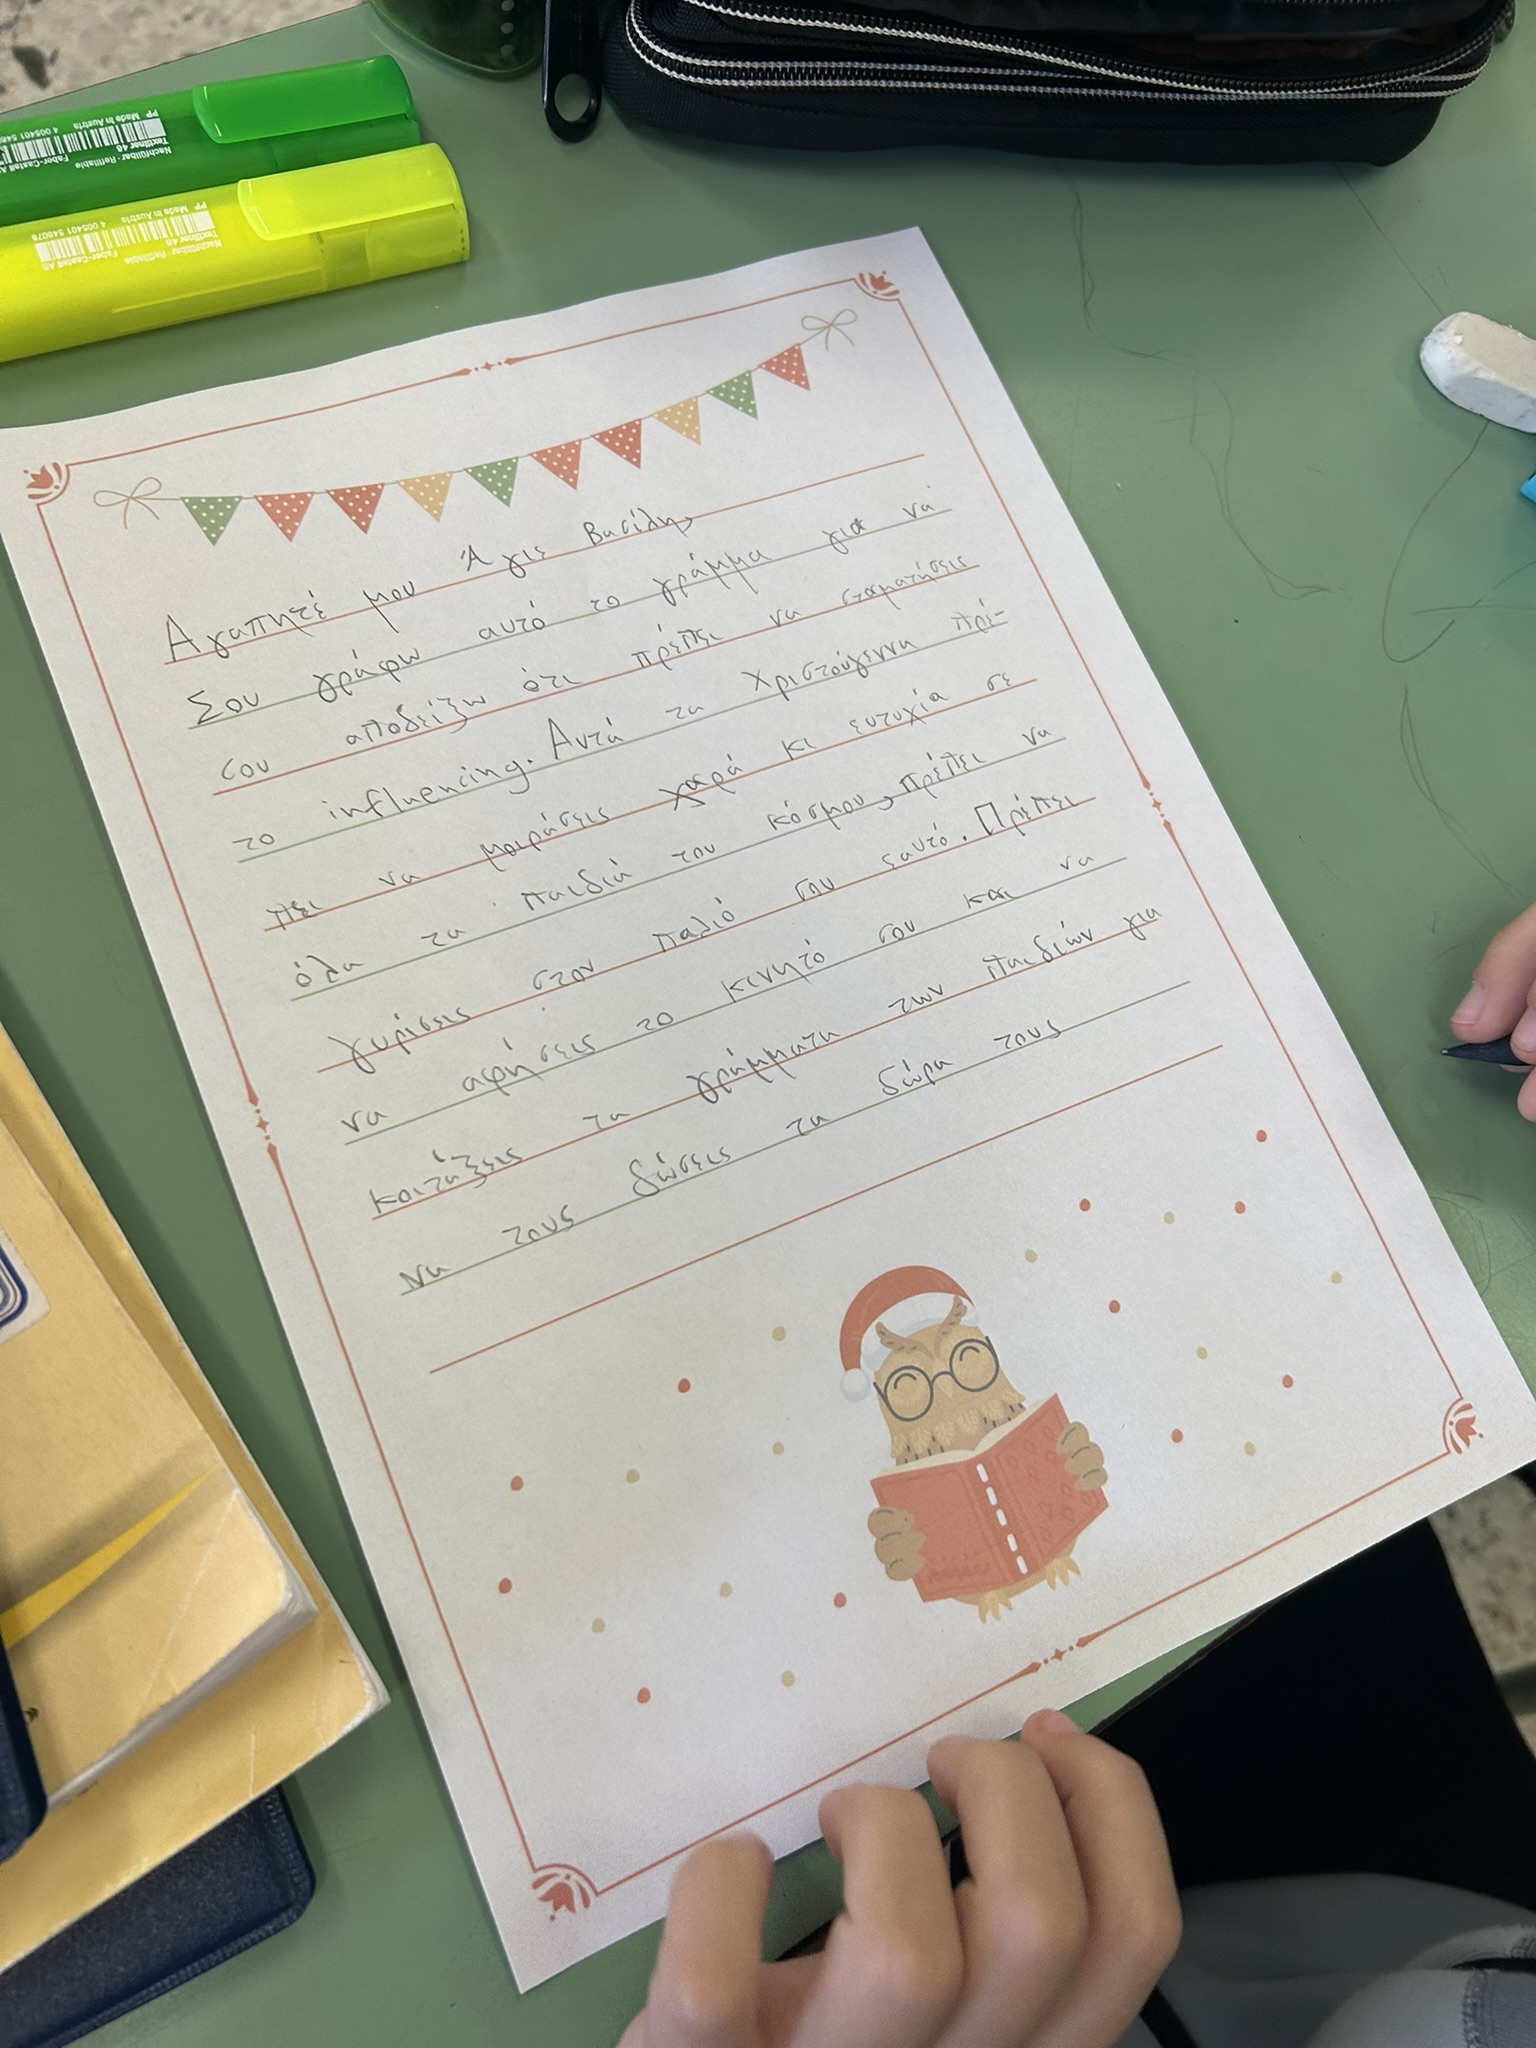 PP Made in Austria
4 005401 5460
Textliner 48
Faber-Castell AG
Nachfüllbar · Refillable
PP Made in Austria
4 005401 546078
Textliner 48
Faber-Castell AG
Nachfüllbar · Refillable
Αγαπητέ μου Άγιε Βασίλη,
Σου γράφω αυτό το γράμμα για να
σου αποδείξω ότι πρέπει να σταματήσεις
το influencing. Αυτά τα Χριστούγεννα πρέ-
πει να μοιράσεις χαρά κι ευτυχία σε
όλα τα παιδιά του κόσμου, πρέπει να
γυρίσεις στον παλιό σου εαυτό. Πρέπει
να αφήσεις το κινητό σου και να
κοιτάξεις τα γράμματα των παιδιών για
να τους δώσεις τα δώρα τους